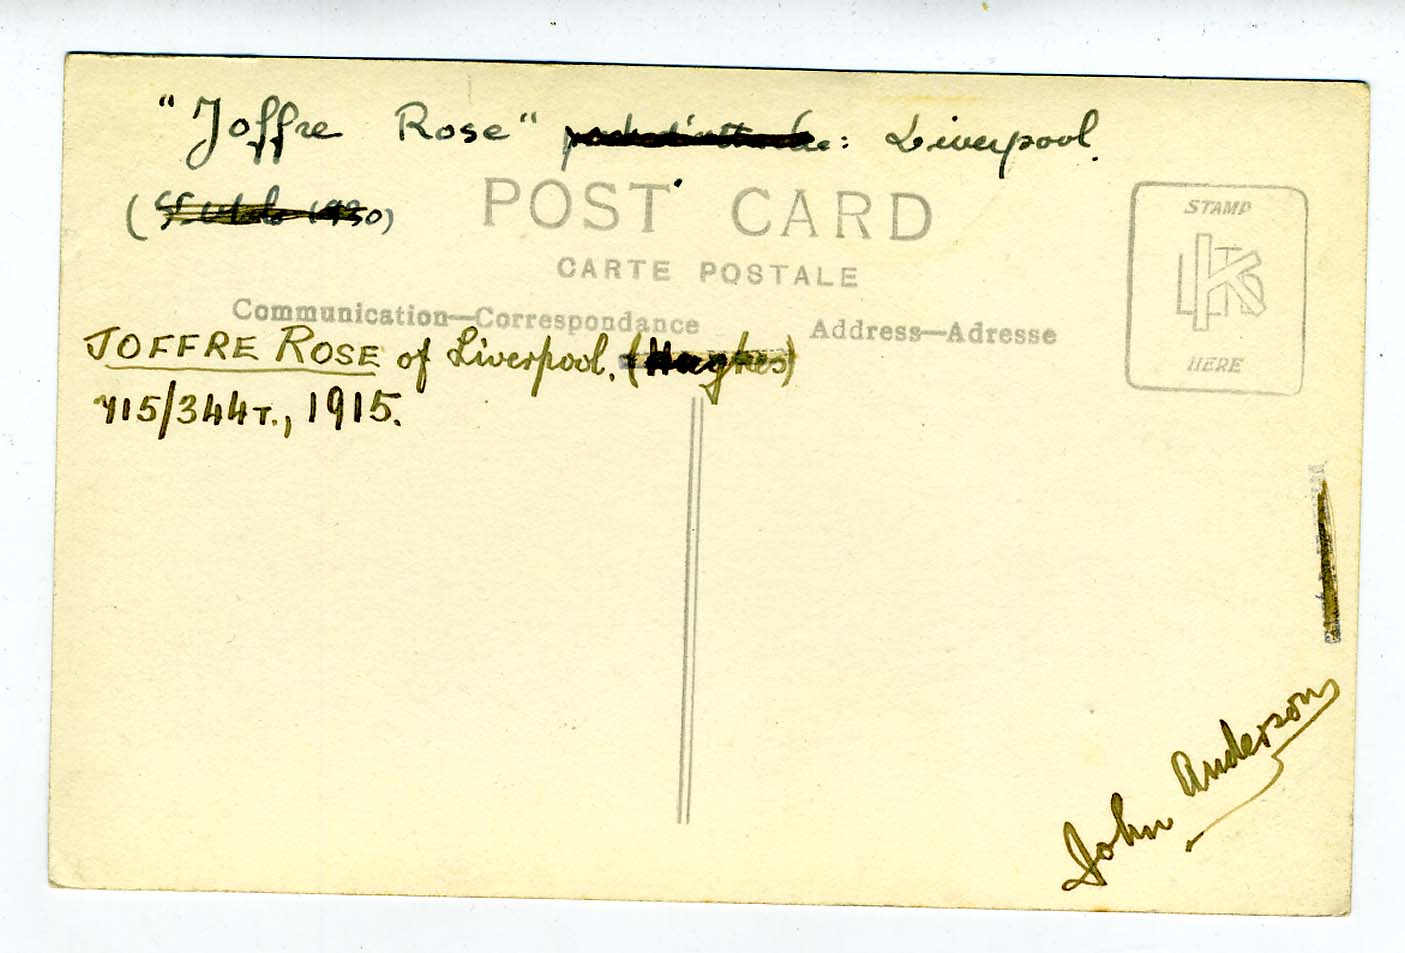 "Joffre Rose" : Liverpool.
( 1930)
POST CARD
CARTE POSTALE
Communication—Correspondance
Address—Adresse
STAMP
HERE
JOFFRE ROSE of Liverpool. (Hughes)
Y15/344T., 1915.
John Anderson